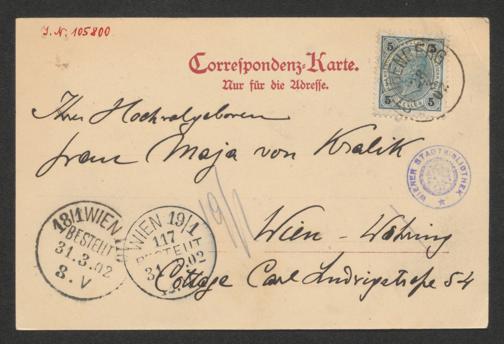 J.N. 105800
Correspondenz-Karte.
Nur für die Adresse.
5 5
5 HELLER 5
Ihrer Hochwolgeboren
Frau Maja von Kralik
WIENER STADTBIBLIOTHEK
18/1 WIEN
BESTELLT
31.3.02
8.V
WIEN 19/1
117
BESTELLT
31.3.02
19/1
Wien - Währing
Cottage Carl Ludwigstraße 54